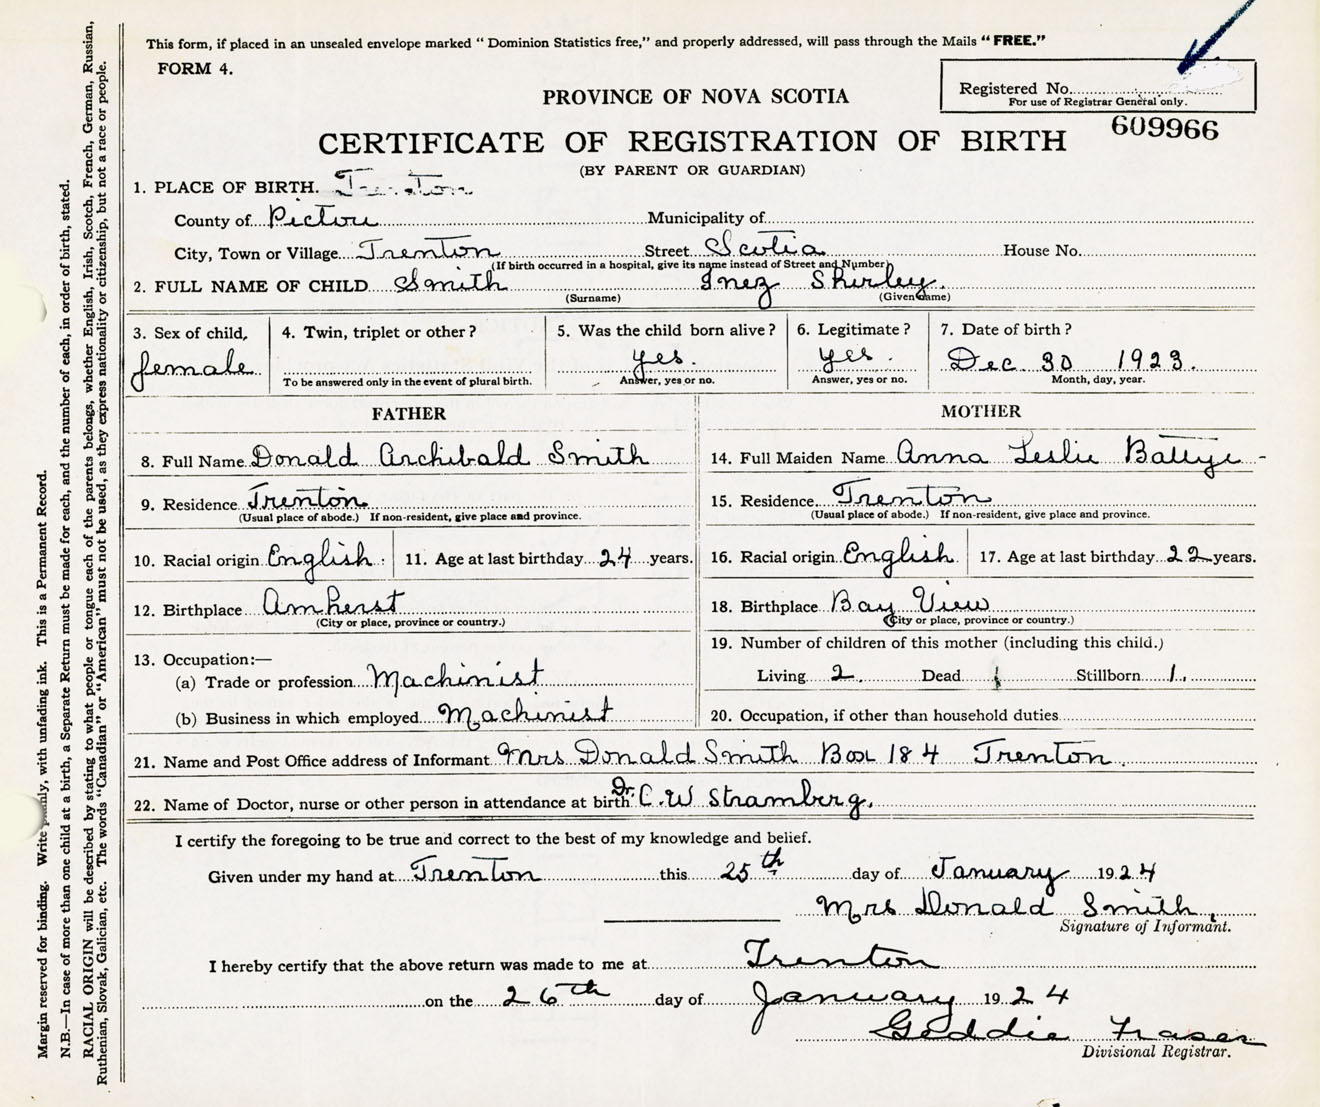 This form, if placed in an unsealed envelope marked “Dominion Statistics free,” and properly addressed, will pass through the Mails “FREE.”
FORM 4.
Registered No.
For use of Registrar General only.
PROVINCE OF NOVA SCOTIA
609966
CERTIFICATE OF REGISTRATION OF BIRTH
(BY PARENT OR GUARDIAN)
1. PLACE OF BIRTH. Trenton
County of Pictou Municipality of
City, Town or Village Trenton Street Scotia House No.
(If birth occurred in a hospital, give its name instead of Street and Number)
2. FULL NAME OF CHILD Smith Inez Shirley.
(Surname) (Given name)
3. Sex of child, 4. Twin, triplet or other? 5. Was the child born alive? 6. Legitimate? 7. Date of birth?
female yes. yes. Dec 30 1923.
To be answered only in the event of plural birth. Answer, yes or no. Answer, yes or no. Month, day, year.
FATHER MOTHER
8. Full Name Donald Archibald Smith 14. Full Maiden Name Anna Leslie Battye -
9. Residence Trenton 15. Residence Trenton
(Usual place of abode.) If non-resident, give place and province. (Usual place of abode.) If non-resident, give place and province.
10. Racial origin English 11. Age at last birthday 24 years. 16. Racial origin English 17. Age at last birthday 22 years.
12. Birthplace Amherst 18. Birthplace Bay View
(City or place, province or country.) (City or place, province or country.)
19. Number of children of this mother (including this child.)
13. Occupation:—
(a) Trade or profession Machinist Living 2. Dead Stillborn 1.
(b) Business in which employed Machinist 20. Occupation, if other than household duties
21. Name and Post Office address of Informant Mrs Donald Smith Box 184 Trenton.
22. Name of Doctor, nurse or other person in attendance at birth Dr. C.W Stramberg.
I certify the foregoing to be true and correct to the best of my knowledge and belief.
Given under my hand at Trenton this 25th day of January 1924
Mrs Donald Smith.
Signature of Informant.
I hereby certify that the above return was made to me at Trenton
on the 26th day of January 1924
Geddie Fraser
Divisional Registrar.
Margin reserved for binding. Write plainly, with unfading ink. This is a Permanent Record.
N.B.—In case of more than one child at a birth, a Separate Return must be made for each, and the number of each, in order of birth, stated.
RACIAL ORIGIN will be described by stating to what people or tongue each of the parents belongs, whether English, Irish, Scotch, French, German, Russian,
Ruthenian, Slovak, Galician, etc. The words “Canadian” or “American” must not be used, as they express nationality or citizenship, but not a race or people.